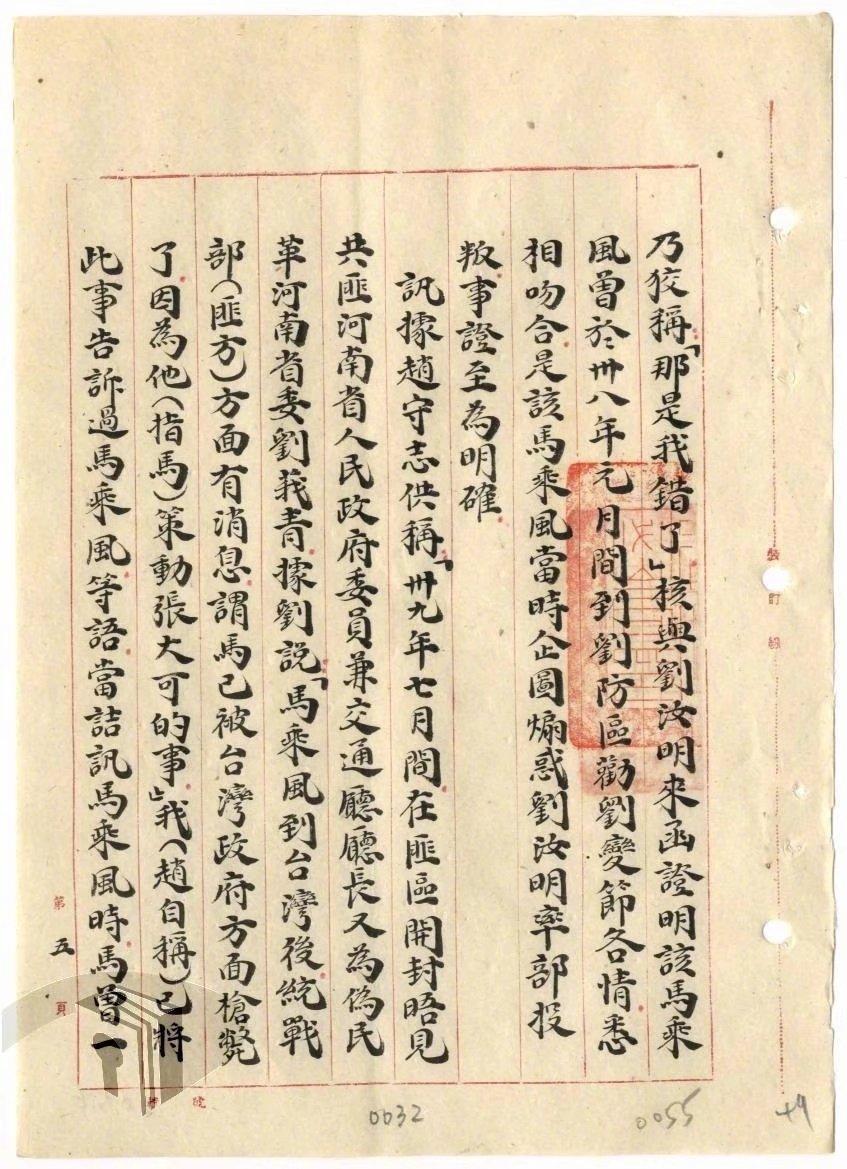 乃狡稱「那是我錯了」核與劉汝明來函證明該馬乘
風曾於卅八年元月間到劉防區勸劉變節各情悉
相吻合是該馬乘風當時企圖煽惑劉汝明率部投
叛事證至為明確
訊據趙守志供稱「卅九年七月間在匪區開封晤見
共匪河南省人民政府委員兼交通廳廳長又為偽民
革河南省委劉莪青據劉說「馬乘風到台灣後統戰
部(匪方)方面有消息謂馬已被台灣政府方面槍斃
了因為他(指馬)策動張大可的事」我(趙自稱)已將
此事告訴過馬乘風等語當詰訊馬乘風時馬曾一
裝訂線
第五頁
0032
0055